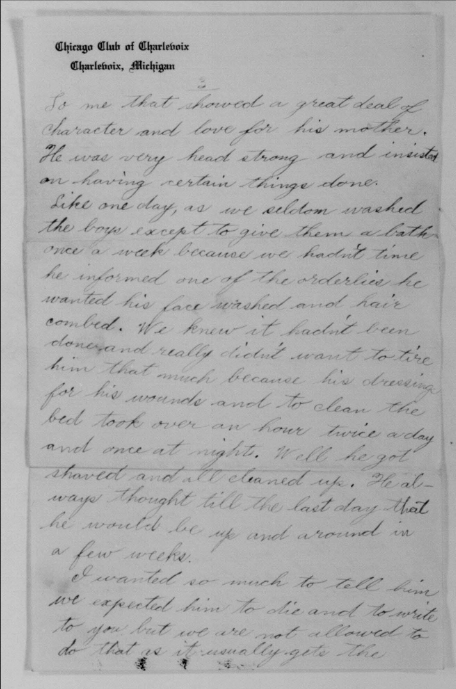 Chicago Club of Charlevoix
Charlevoix, Michigan
3
To me that showed a great deal of
character and love for his mother.
He was very head strong and insisted
on having certain things done.
Like one day, as we seldom washed
the boys except to give them a bath
once a week because we hadn't time
he informed one of the orderlies he
wanted his face washed and hair
combed. We knew it hadn't been
done and really didn't want to tire
him that much because his dressing
for his wounds and to clean the
bed took over an hour twice a day
and once at night. Well he got
shaved and all cleaned up. He al-
ways thought till the last day that
he would be up and around in
a few weeks.
I wanted so much to tell him
we expected him to die and to write
to you but we are not allowed to
do that as it usually gets the